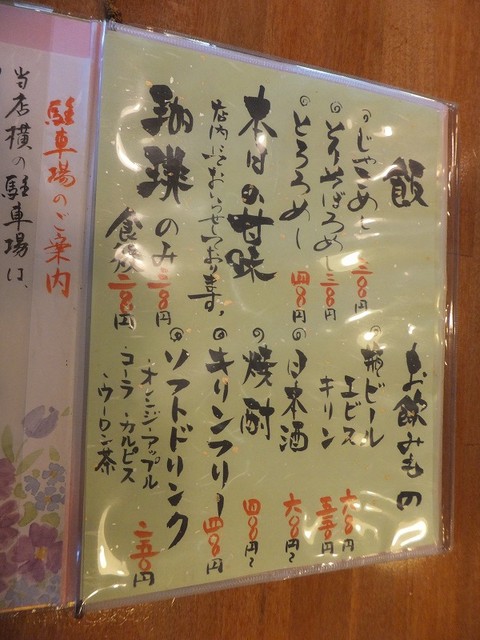 飯
じゃこめし 二〇〇円
とりそぼろめし 三〇〇円
とろろめし 四〇〇円
本日の甘味
店内においのせております。
珈琲のみ 三〇〇円
食後 二〇〇円
お飲みもの
瓶ビール
エビス 六〇〇円
キリン 五五〇円
日本酒 六〇〇円〜
焼酎 四〇〇円〜
キリンフリー 四〇〇円
ソフトドリンク 二五〇円
・オレンジ・アップル
・コーラ・カルピス
・ウーロン茶
駐車場のご案内
当店横の駐車場は、